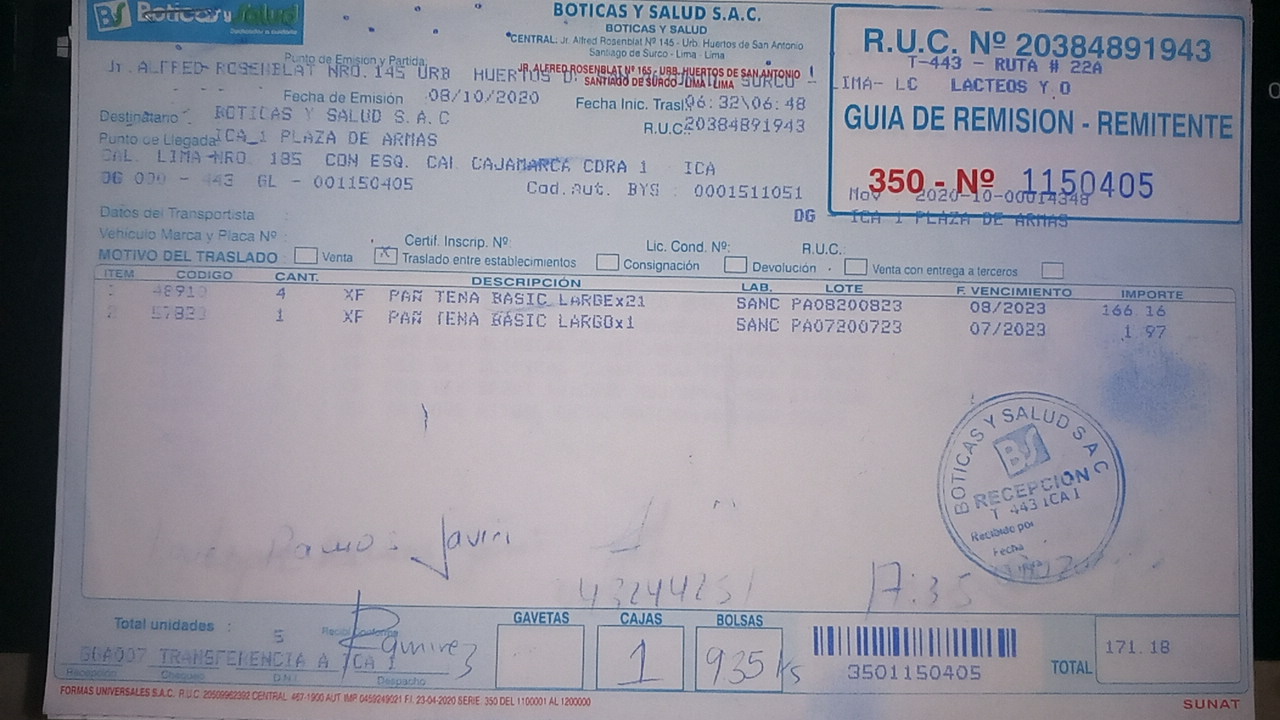 BS Boticas y Salud
BOTICAS Y SALUD S.A.C.
BOTICAS Y SALUD
CENTRAL: Jr. Alfred Rosenblat Nº 145 - Urb. Huertos de San Antonio
Santiago de Surco - Lima - Lima
Punto de Emisión y Partida:
JR. ALFRED ROSENBLAT Nº 165 - URB. HUERTOS DE SAN ANTONIO
SANTIAGO DE SURCO - LIMA - LIMA
Jr. ALFRED ROSENBLAT NRO. 145 URB HUERTOS D SURCO -
LIMA- LC LACTEOS Y O
R.U.C. Nº 20384891943
T-443 - RUTA # 22A
GUIA DE REMISION - REMITENTE
350 - Nº 1150405
Mov 2020-10-00014348
DG - ICA 1 PLAZA DE ARMAS
Fecha de Emisión : 08/10/2020 Fecha Inic. Trasl. 06:32\06:48
Destinatario : BOTICAS Y SALUD S.A.C R.U.C: 20384891943
Punto de Llegada: ICA_1 PLAZA DE ARMAS
CAL. LIMA NRO. 185 CON ESQ. CAL CAJAMARCA CDRA 1 ICA
DG 000 - 443 GL - 001150405 Cod.Aut. BYS : 0001511051
Datos del Transportista :
Vehículo Marca y Placa Nº : Certif. Inscrip. Nº: Lic. Cond. Nº: R.U.C.:
MOTIVO DEL TRASLADO Venta X Traslado entre establecimientos Consignación Devolución Venta con entrega a terceros
ITEM CODIGO CANT. DESCRIPCIÓN LAB. LOTE F. VENCIMIENTO IMPORTE
1 48910 4 XF PAÑ TENA BASIC LARGEx21 SANC PA08200823 08/2023 166.16
2 57823 1 XF PAÑ TENA BASIC LARGOx1 SANC PA07200723 07/2023 1.97
BOTICAS Y SALUD S A C
BS
RECEPCIÓN
T 443 ICA 1
Recibido por
Fecha
Ramos Javier
43244251 17:35
Total unidades : 5
Recibí Conforme
Ramirez
GAVETAS CAJAS BOLSAS
1 935 ks
3501150405
TOTAL 171.18
GUA007 TRANSFERENCIA A ICA 1
Recepción Chequeo D.N.I. Despacho
FORMAS UNIVERSALES S.A.C. R.U.C. 20509962392 CENTRAL: 467-1900 AUT IMP 0459249021 F.I. 23-04-2020 SERIE: 350 DEL 1100001 AL 1200000
SUNAT